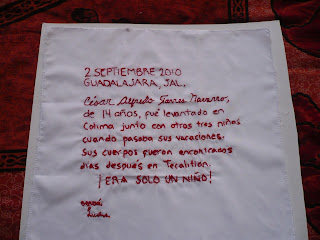 2 SEPTIEMBRE 2010
GUADALAJARA, JAL.
César Alfredo Torres Navarro,
de 14 años, fué levantado en
Colima junto con otros tres niños
cuando pasaba sus vacaciones.
Sus cuerpos fueron encontrados
días después en Tecalitlan.
¡ERA SOLO UN NIÑO!